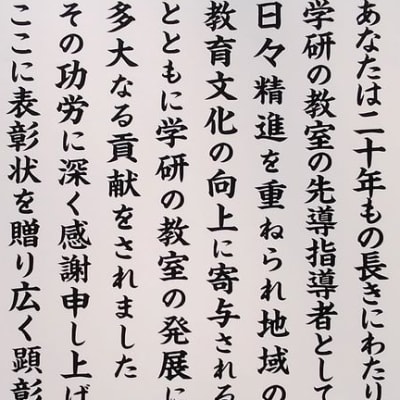 あなたは二十年もの長きにわたり
学研の教室の先導指導者として
日々精進を重ねられ地域の
教育文化の向上に寄与される
とともに学研の教室の発展に
多大なる貢献をされました
その功労に深く感謝申し上げ
ここに表彰状を贈り広く顕彰